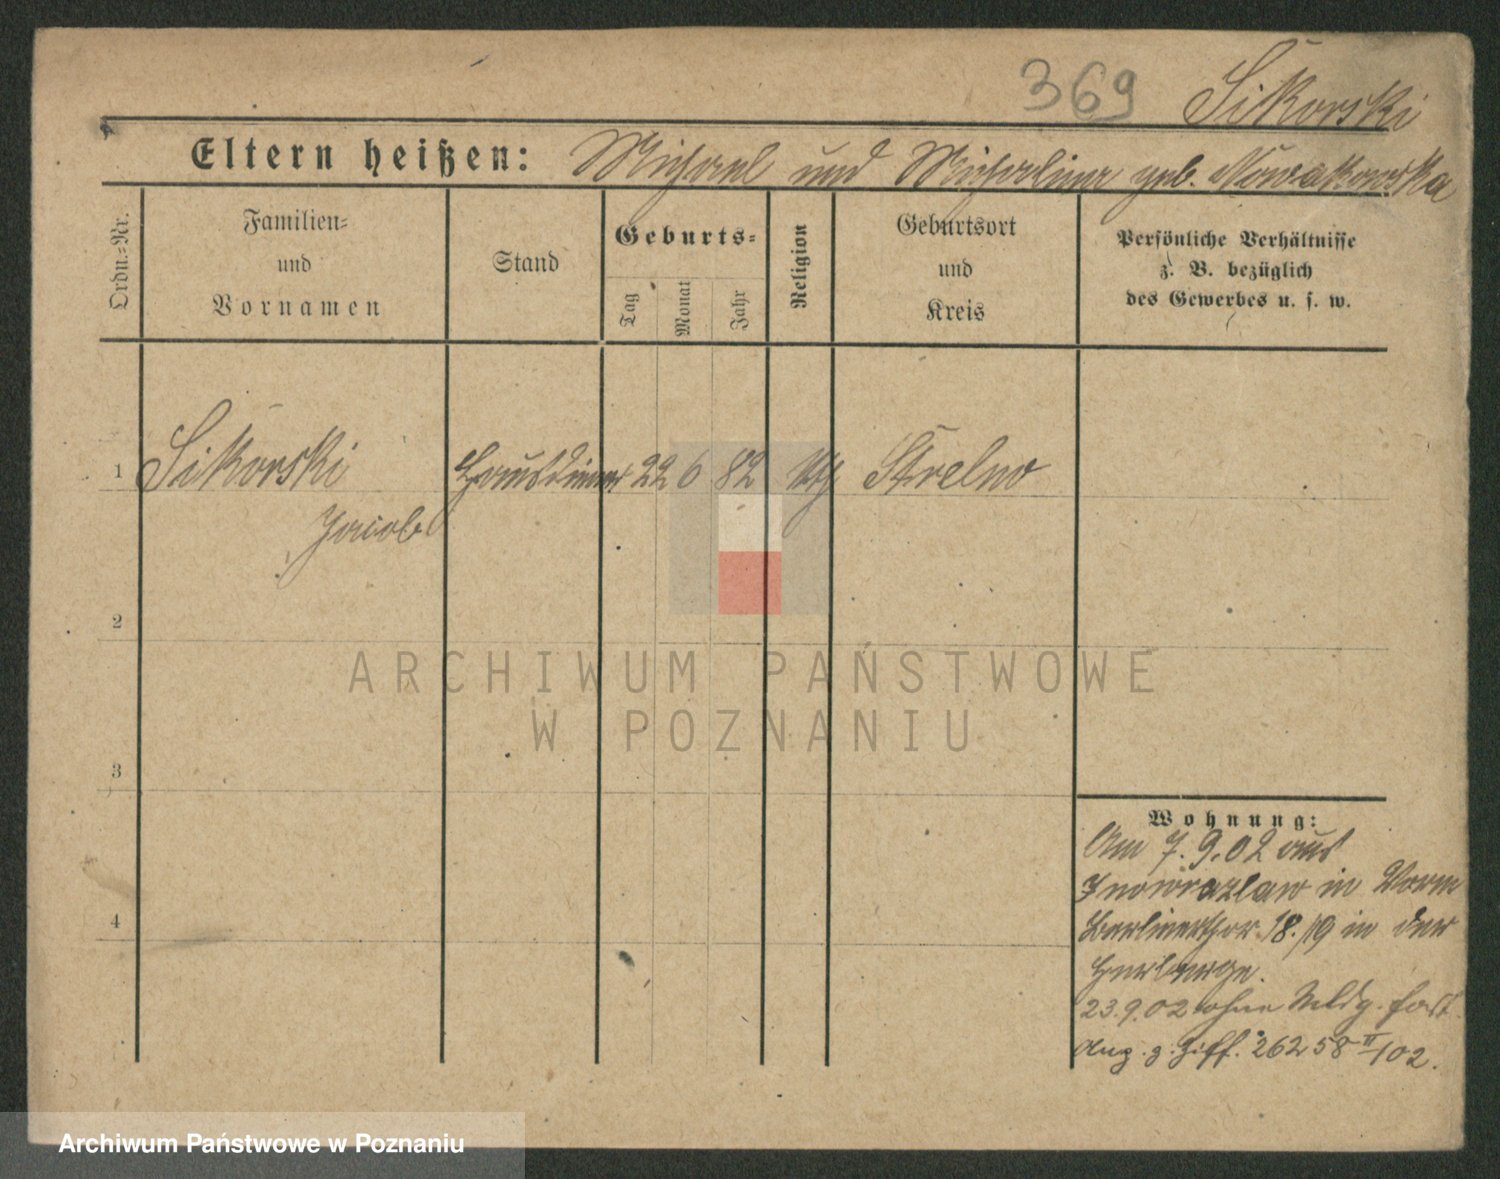 369 Sikorski
Eltern heißen: Michael und Michalina geb. Nowakowska
Ordn.-Nr.
Familien-
und
Vornamen
Stand
Geburts-
Tag
Monat
Jahr
Religion
Geburtsort
und
Kreis
Persönliche Verhältnisse
z. B. bezüglich
des Gewerbes u. s. w.
1 Sikorski Hausdiener 22 6 82 Strelno
Jacob
2
3
4
Wohnung:
Am 7.9.02 aus
Inowrazlaw in Vorm
Berlinerthor 18/19 in der
Herberge.
23.9.02 ohne Meldg. fort.
Ang. z. Ziff. 26258 II/02.
ARCHIWUM PAŃSTWOWE
W POZNANIU
Archiwum Państwowe w Poznaniu